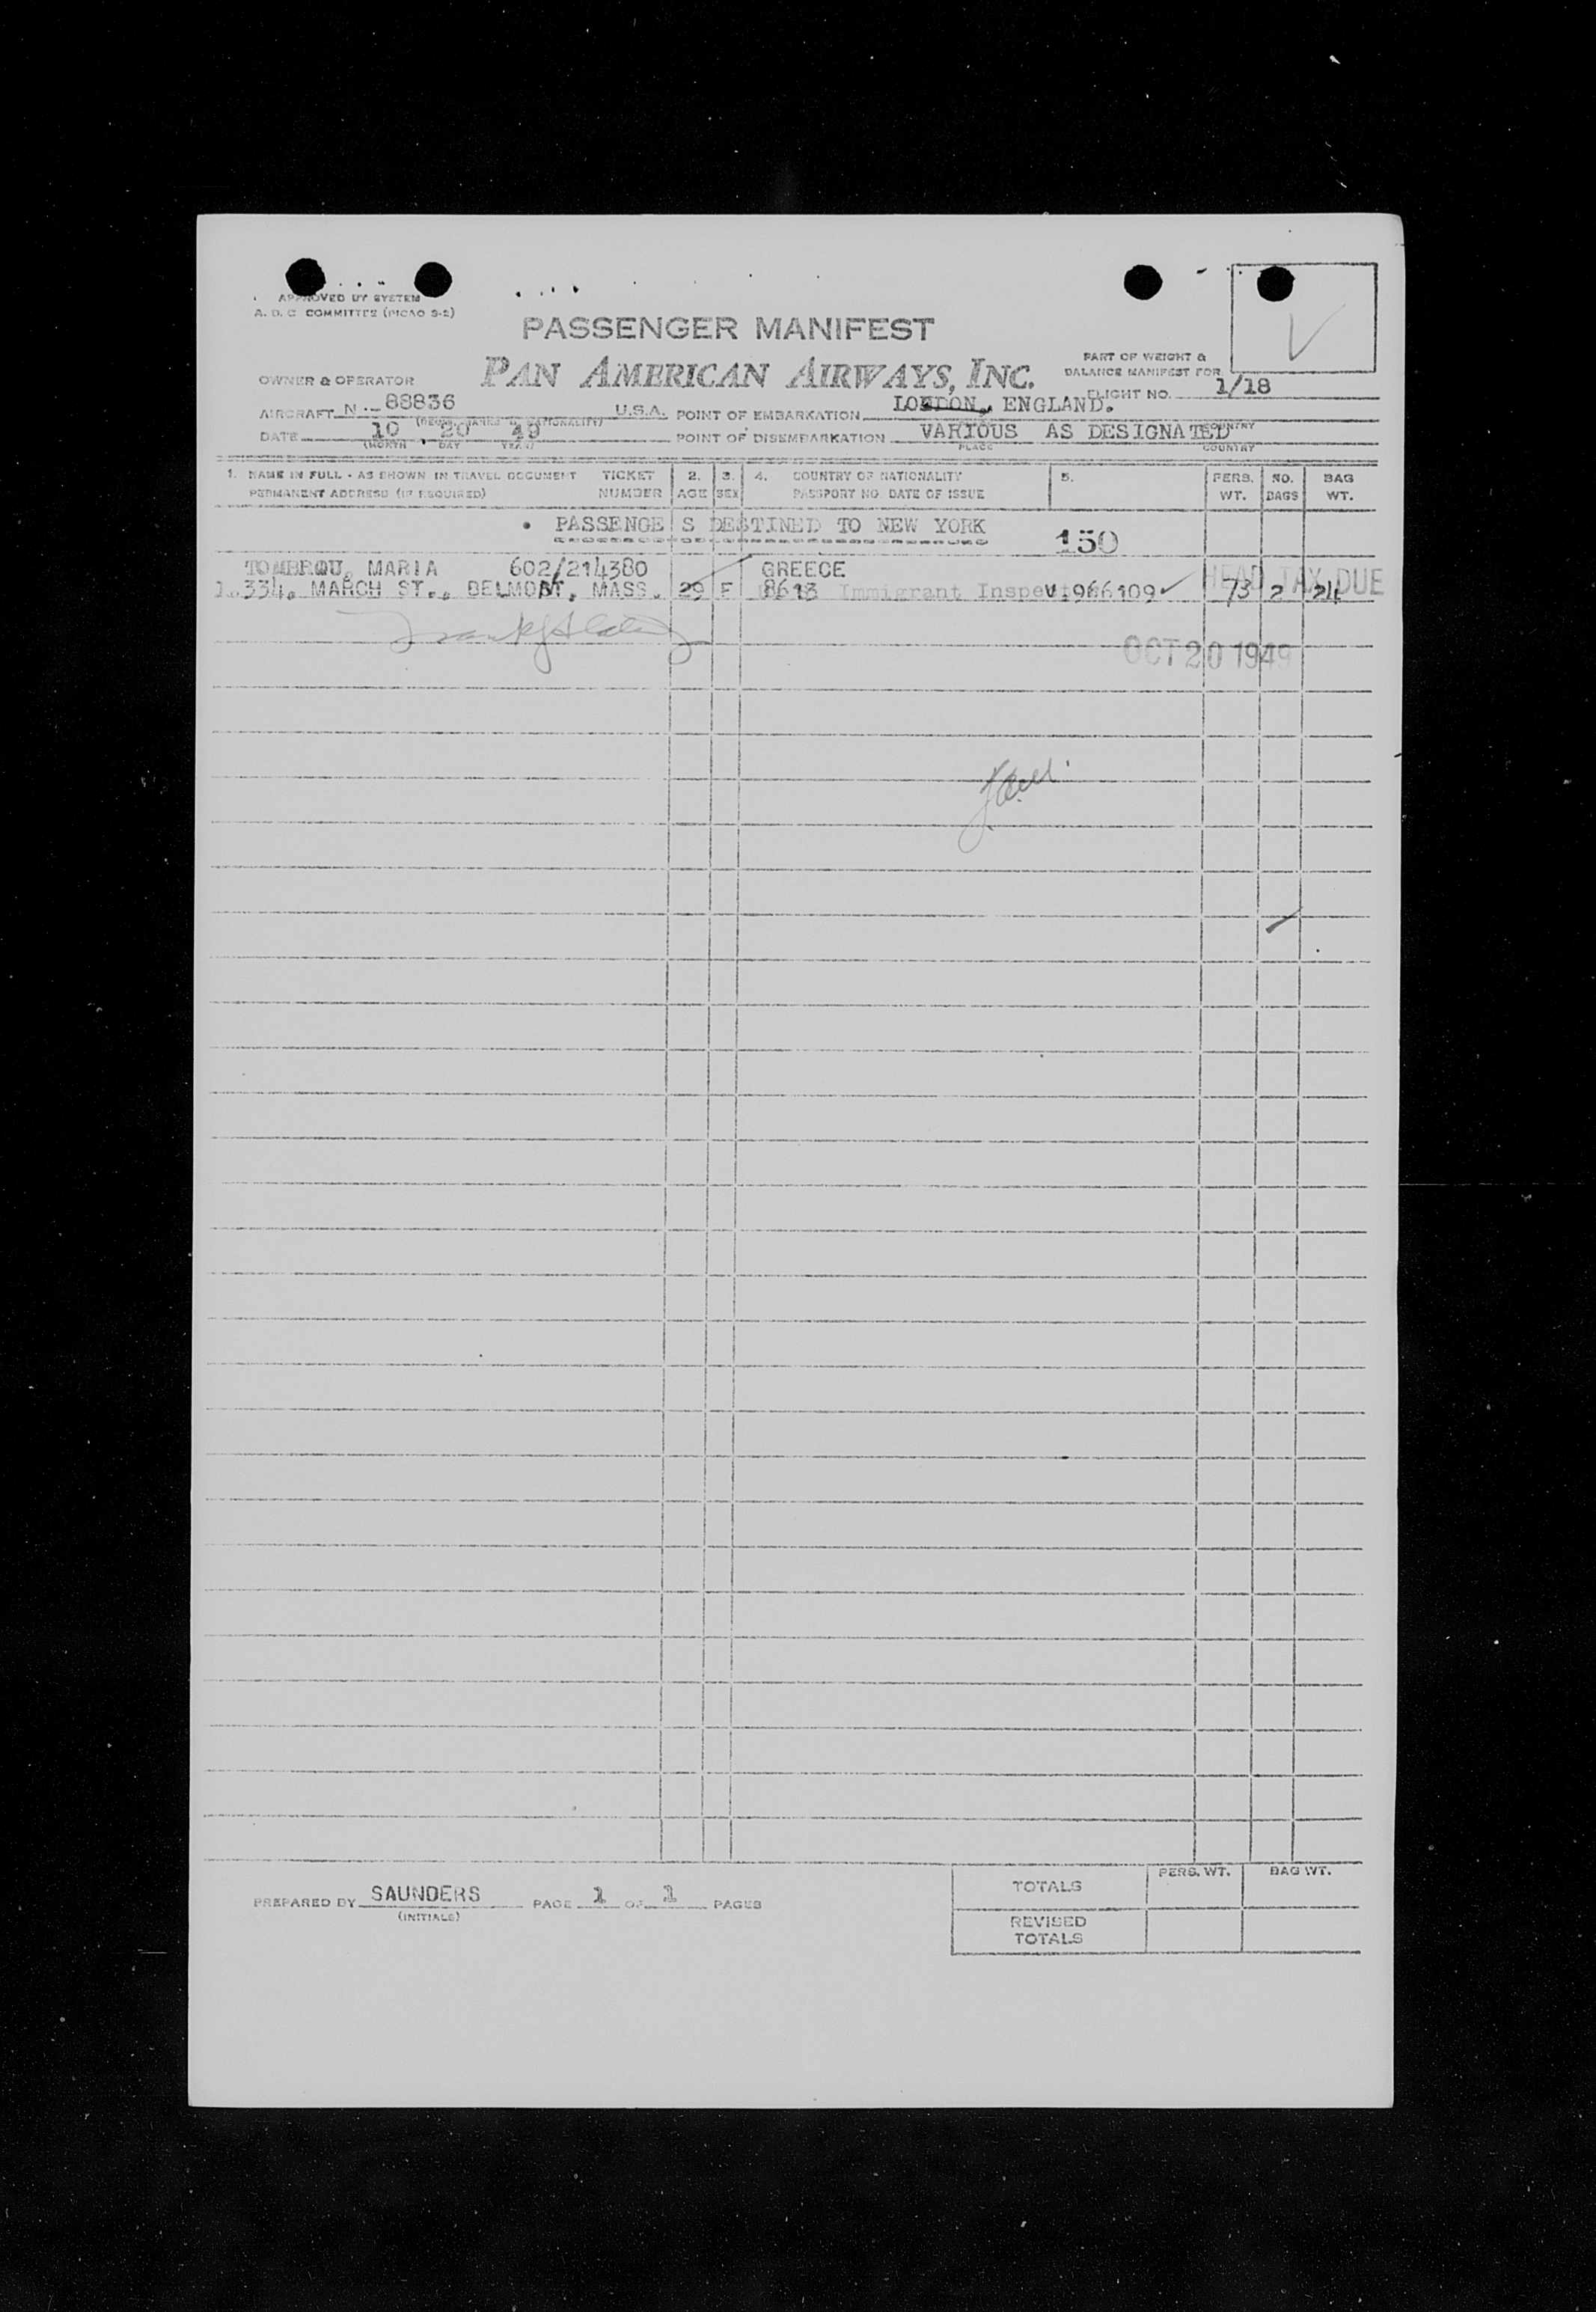 APPROVED BY SYSTEM
A. D. C COMMITTEE (PICAO S-2)
PASSENGER MANIFEST
PART OF WEIGHT &
BALANCE MANIFEST FOR
OWNER & OPERATOR PAN AMERICAN AIRWAYS, INC.
FLIGHT NO. 1/18
AIRCRAFT N.-88836 U.S.A. POINT OF EMBARKATION LONDON, ENGLAND.
DATE 10 20 49 POINT OF DISEMBARKATION VARIOUS AS DESIGNATED
(MONTH DAY YEAR) PLACE COUNTRY
1. NAME IN FULL - AS SHOWN IN TRAVEL DOCUMENT TICKET 2. 3. 4. COUNTRY OF NATIONALITY 5. PERS. NO. BAG
PERMANENT ADDRESS (IF REQUIRED) NUMBER AGE SEX PASSPORT NO. DATE OF ISSUE WT. BAGS WT.
PASSENGE S DESTINED TO NEW YORK 150
TOMBROU, MARIA 602/214380 GREECE HEAD TAX DUE
1. 334, MARCH ST., BELMONT, MASS. 29 F 8613 Immigrant Inspector V.966109 73 2 24
OCT 20 1949
PREPARED BY SAUNDERS PAGE 1 OF 1 PAGES
(INITIALS)
TOTALS PERS. WT. BAG WT.
REVISED
TOTALS